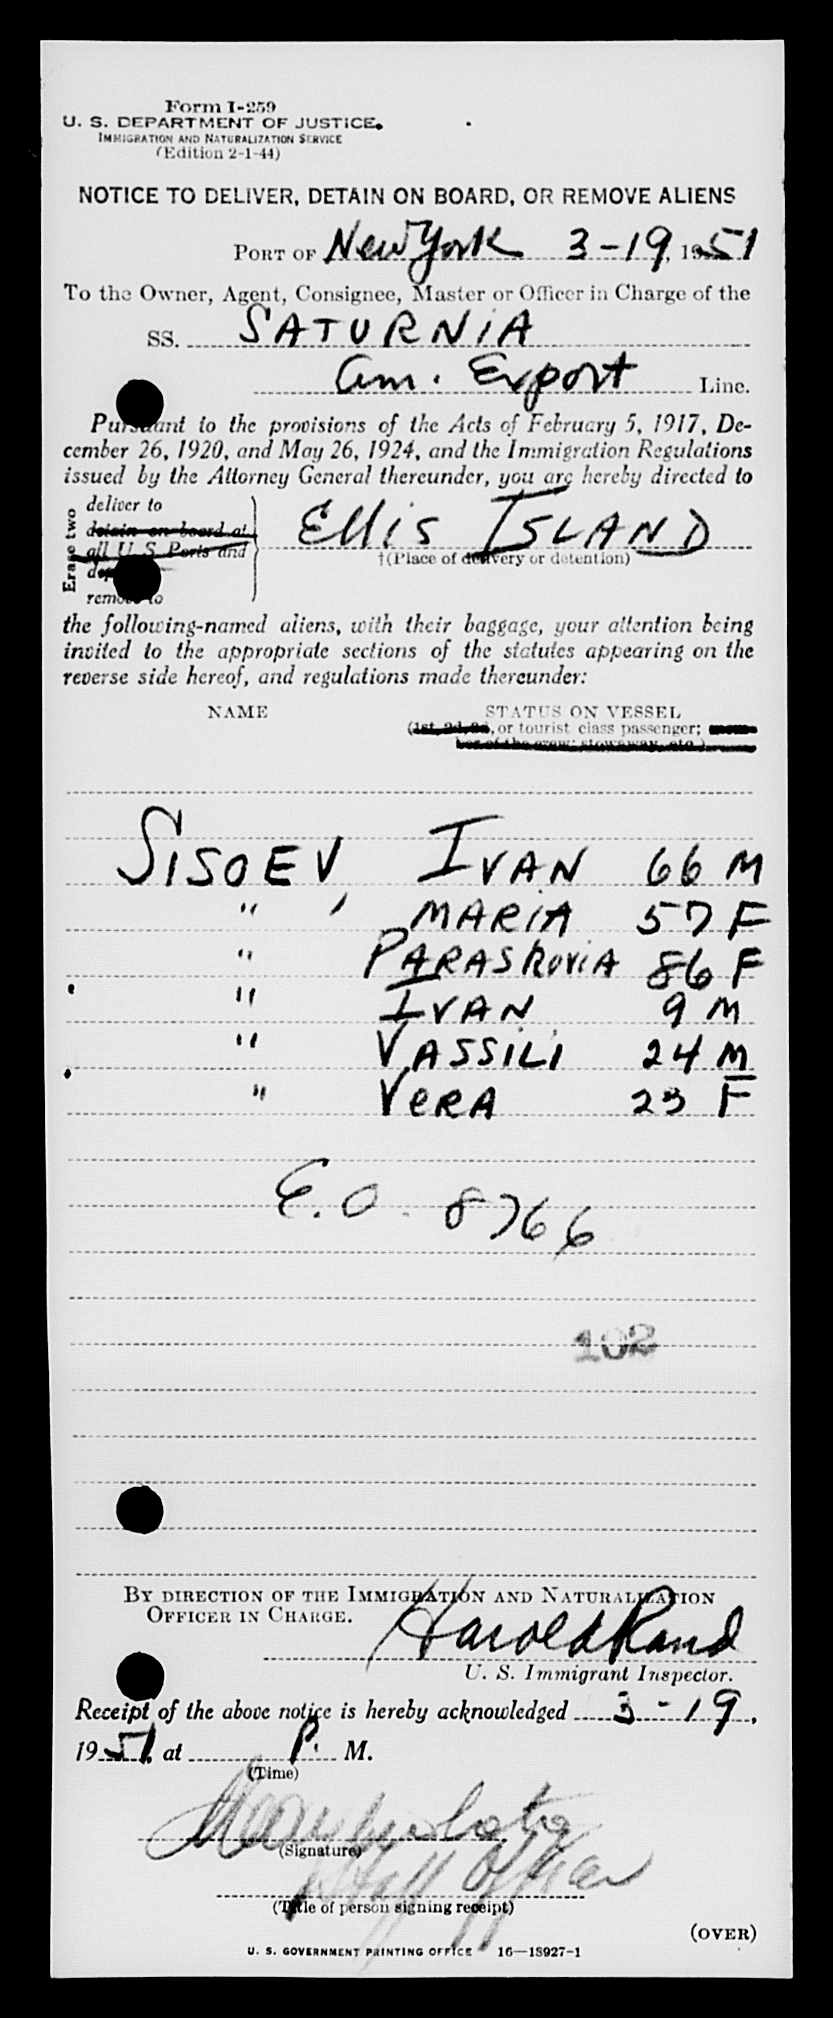 Form I-259
U. S. DEPARTMENT OF JUSTICE.
IMMIGRATION AND NATURALIZATION SERVICE
(Edition 2-1-44)
NOTICE TO DELIVER, DETAIN ON BOARD, OR REMOVE ALIENS
PORT OF New York 3-19, 1951
To the Owner, Agent, Consignee, Master or Officer in Charge of the
SS. SATURNIA
Am. Export Line.
Pursuant to the provisions of the Acts of February 5, 1917, De-
cember 26, 1920, and May 26, 1924, and the Immigration Regulations
issued by the Attorney General thereunder, you are hereby directed to
Erase two
deliver to
detain on board at
all U S Ports and
remove to
Ellis ISLAND
†(Place of delivery or detention)
the following-named aliens, with their baggage, your attention being
invited to the appropriate sections of the statutes appearing on the
reverse side hereof, and regulations made thereunder:
NAME STATUS ON VESSEL
(1st, 2d, 3d, or tourist class passenger; mem-
ber of the crew; stowaway, etc.)
SISOEV, IVAN 66 M
" , MARIA 57 F
" PARASKOVIA 86 F
" IVAN 9 M
" VASSILI 24 M
" VERA 23 F
E.O. 8766
102
BY DIRECTION OF THE IMMIGRATION AND NATURALIZATION
OFFICER IN CHARGE.
Harold Rand
U. S. Immigrant Inspector.
Receipt of the above notice is hereby acknowledged 3-19,
1951, at P. M.
(Time)
(Signature)
Staff Officer
(Title of person signing receipt)
(OVER)
U. S. GOVERNMENT PRINTING OFFICE 16—18927-1